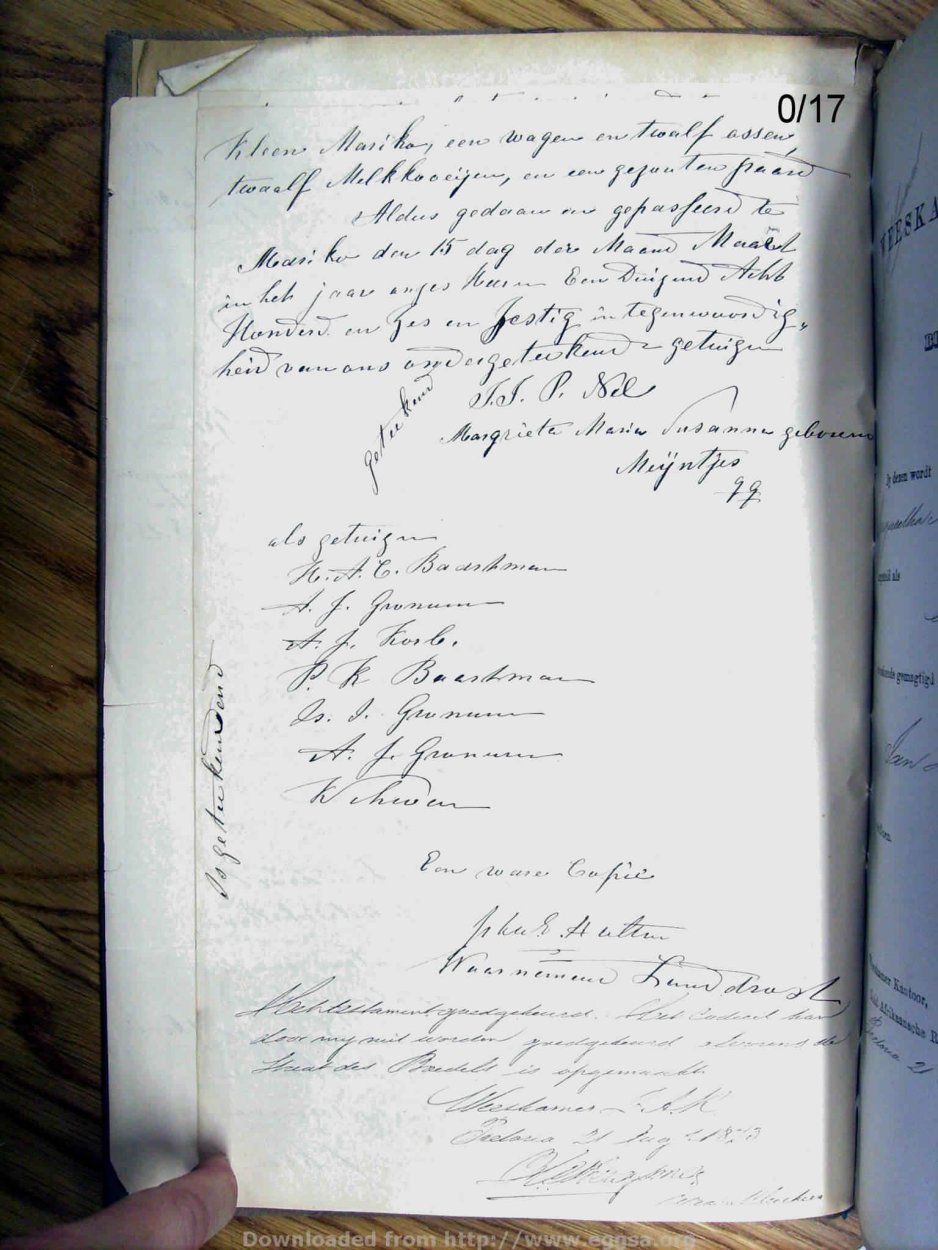 0/17
Kleen Mariko, een wagen en twalf ossen,
twaalf Melkkooeijen, en een gezouten paard
Aldus gedaan en gepasseerd te
Mariko den 15 dag der Maand Maart
in het jaar onzes Heeren Een Duizend Acht
Honderd en Zes en Zestig in tegenwoordig„
heid van ons ondergeteekende getuigen
geteekend
J. J. P. Nel
Margrieta Maria Susanna geboren
Meijntjes
als getuigen
H. A. C. Baastman
A. J. Gronum
A. J.
P. K Baastman
Js. J. Gronum
A. J. Gronum
geteekend
Een ware Copie
Waarnemend Landdrost
Het testament goedgekeurd. Het Codicil kan
door mij niet worden goedgekeurd alvorens de
Staat des Boedels is opgemaakt
Weeskamer Z. A. R.
Pretoria 21 Aug 1873
WEESKA
By dezen wordt
gemagtigd
Kantoor,
Afrikaansche R
Pretoria 21
Downloaded from http://www.eggsa.org